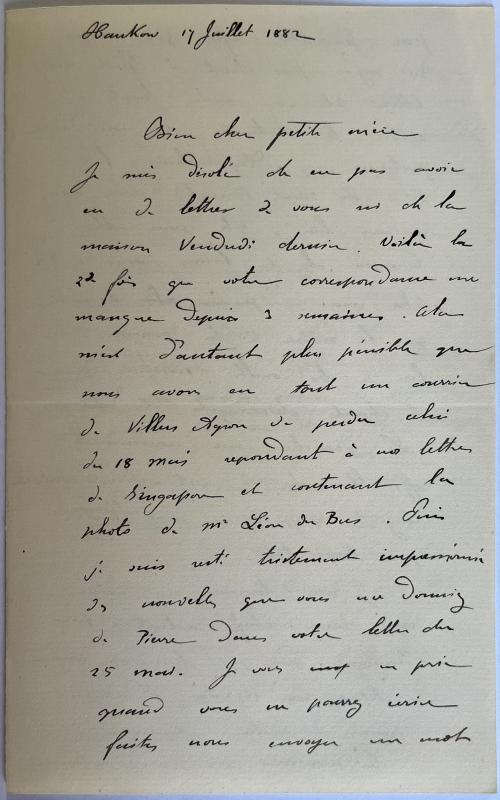 Hankow 17 Juillet 1882
Bien cher petite mère
Je suis désolé de ne pas avoir
eu de lettres de vous ni de la
maison Vendredi dernier. Voilà la
2de fois que votre correspondance me
manque depuis 3 semaines. Cela
m'est d'autant plus pénible que
nous avons en tout un courrier
de Villers Agron de perdu celui
du 18 mai repondant à nos lettres
de Singapour et contenant la
photo de Mr Léon du Bus. Puis
je suis resté tristement impressionné
des nouvelles que vous me donniez
de Pierre dans votre lettre du
25 mai. Je vous en prie
quand vous ne pourrez écrire
faites nous envoyer un mot